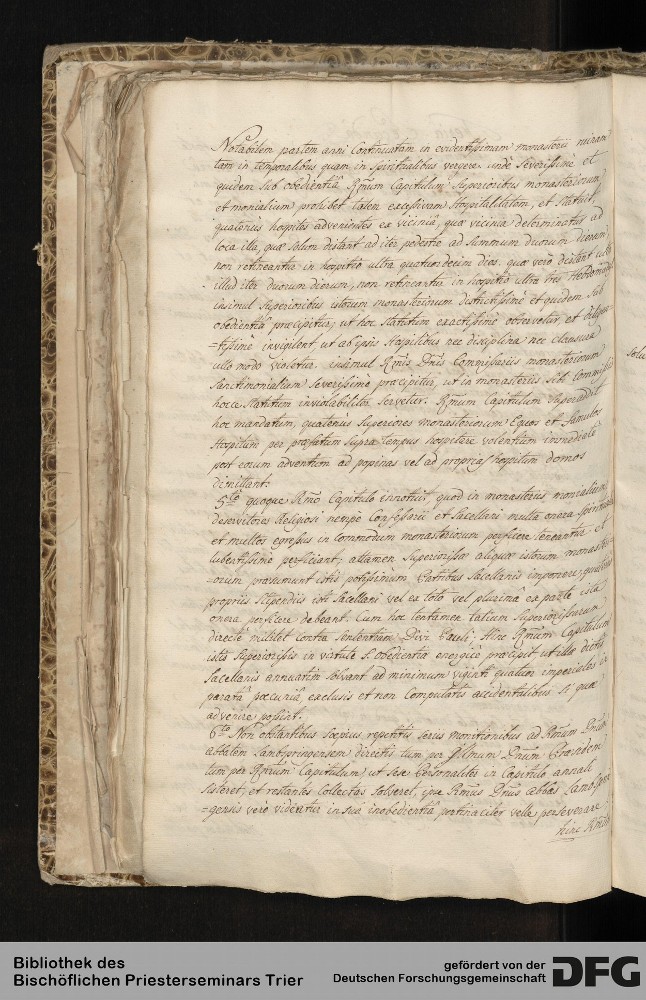 Notabilem partem anni continuatam in evidentissimam monasterii ruinam
tam in temporalibus quam in spiritualibus vergere. unde severissime et
quidem sub obedientiâ Rmum Capitulum Superioribus monasteriorum
et monialium prohibet talem excessivam Hospitalitatem, et statuit,
quatenus hospites advenientes ex viciniâ, quæ vicinia determinatur ad
loca illa, quæ solum distant ad iter pedestre ad summum duorum dierum,
non retineantur in hospitio ultra quatuordecim dies. quæ verò distant ultra
illud iter duorum dierum, non retineantur in hospitio ultra tres Hebdomadas
insimul Superioribus istorum monasteriorum districtissimè et quidem sub
obedientiâ præcipitur, ut hoc statutum exactissimè observetur, et diligen-
=tissimè invigilent, ut ab ipsis Hospitibus nec disciplina nec clausura
ullo modo violetur. insimul Rmis Dnis Commissariis monasteriorum
Sanctimonialium severissimè præcipitur, ut in monasteriis sibi commissis
hocce statutum inviolabiliter servetur. Rmum Capitulum superaddit
hoc mandatum, quatenus Superiores monasteriorum Equos et famulos
Hospitum per præfatum supra tempus hospitare volentium immediatè
post eorum adventum ad popinas vel ad propria hospitum domos
dimittant.
5to quoque Rmo Capitulo innotuit, quod in monasteriis monialium
deservitores Religiosi nempè Confessarii et Sacellani multa onera spiritualia
et multos egressus in commodum monasteriorum perficere teneantur et
lubentissimè perficiant; attamen Superiorissæ aliquæ istorum monasteri-
=orum præsumunt istis potissimum Patribus Sacellanis imponere, quatenus
propriis stipendiis isti Sacellani vel ex toto vel plurimâ ex parte ista
onera perficere debeant. Cum hoc tentamen talium Superiorissarum
directè militet contra sententiam Divi Pauli: Hinc Rmum Capitulum
istis Superiorissis in virtute S. obedientiæ energicè præcipit, ut illæ dictis
Sacellanis annuatim solvant ad minimum viginti quatuor imperiales in
paratâ pecuniâ, exclusis et non computatis accidentalibus si quæ
advenire possint.
6to Non obstantibus sæpius repetitis seriis monitionibus ad Rmum Dnum
abbatem Lambspringensem directis tum per Dnum Præsidem
tum per Rmum Capitulum, ut sese Personaliter in Capitulo annali
sisteret, et restantes collectas solveret, ipse Rmus Dnus abbas Lambsprin-
=gensis verò videatur in sua inobedientiâ pertinaciter velle perseverare:
hinc Rmum
Bibliothek des
Bischöflichen Priesterseminars Trier
gefördert von der
Deutschen Forschungsgemeinschaft
DFG